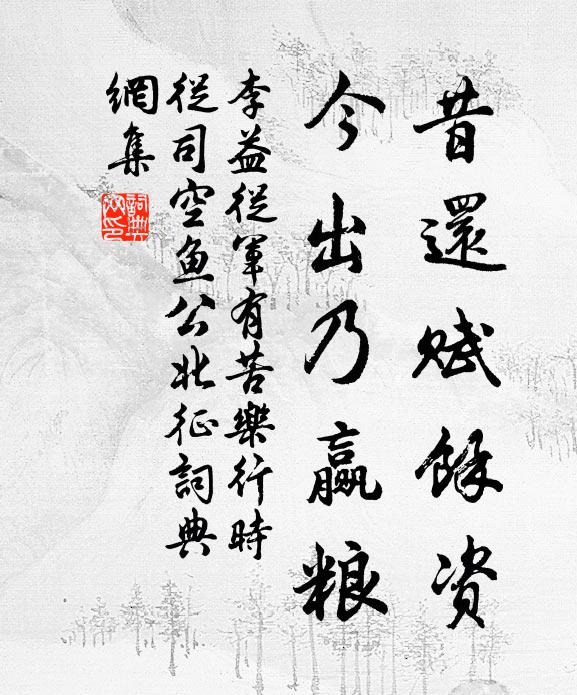 昔還賦餘资
今出乃贏粮
李益從軍有苦樂行時
從司空魚公北征詞典
網集
詞典
网印